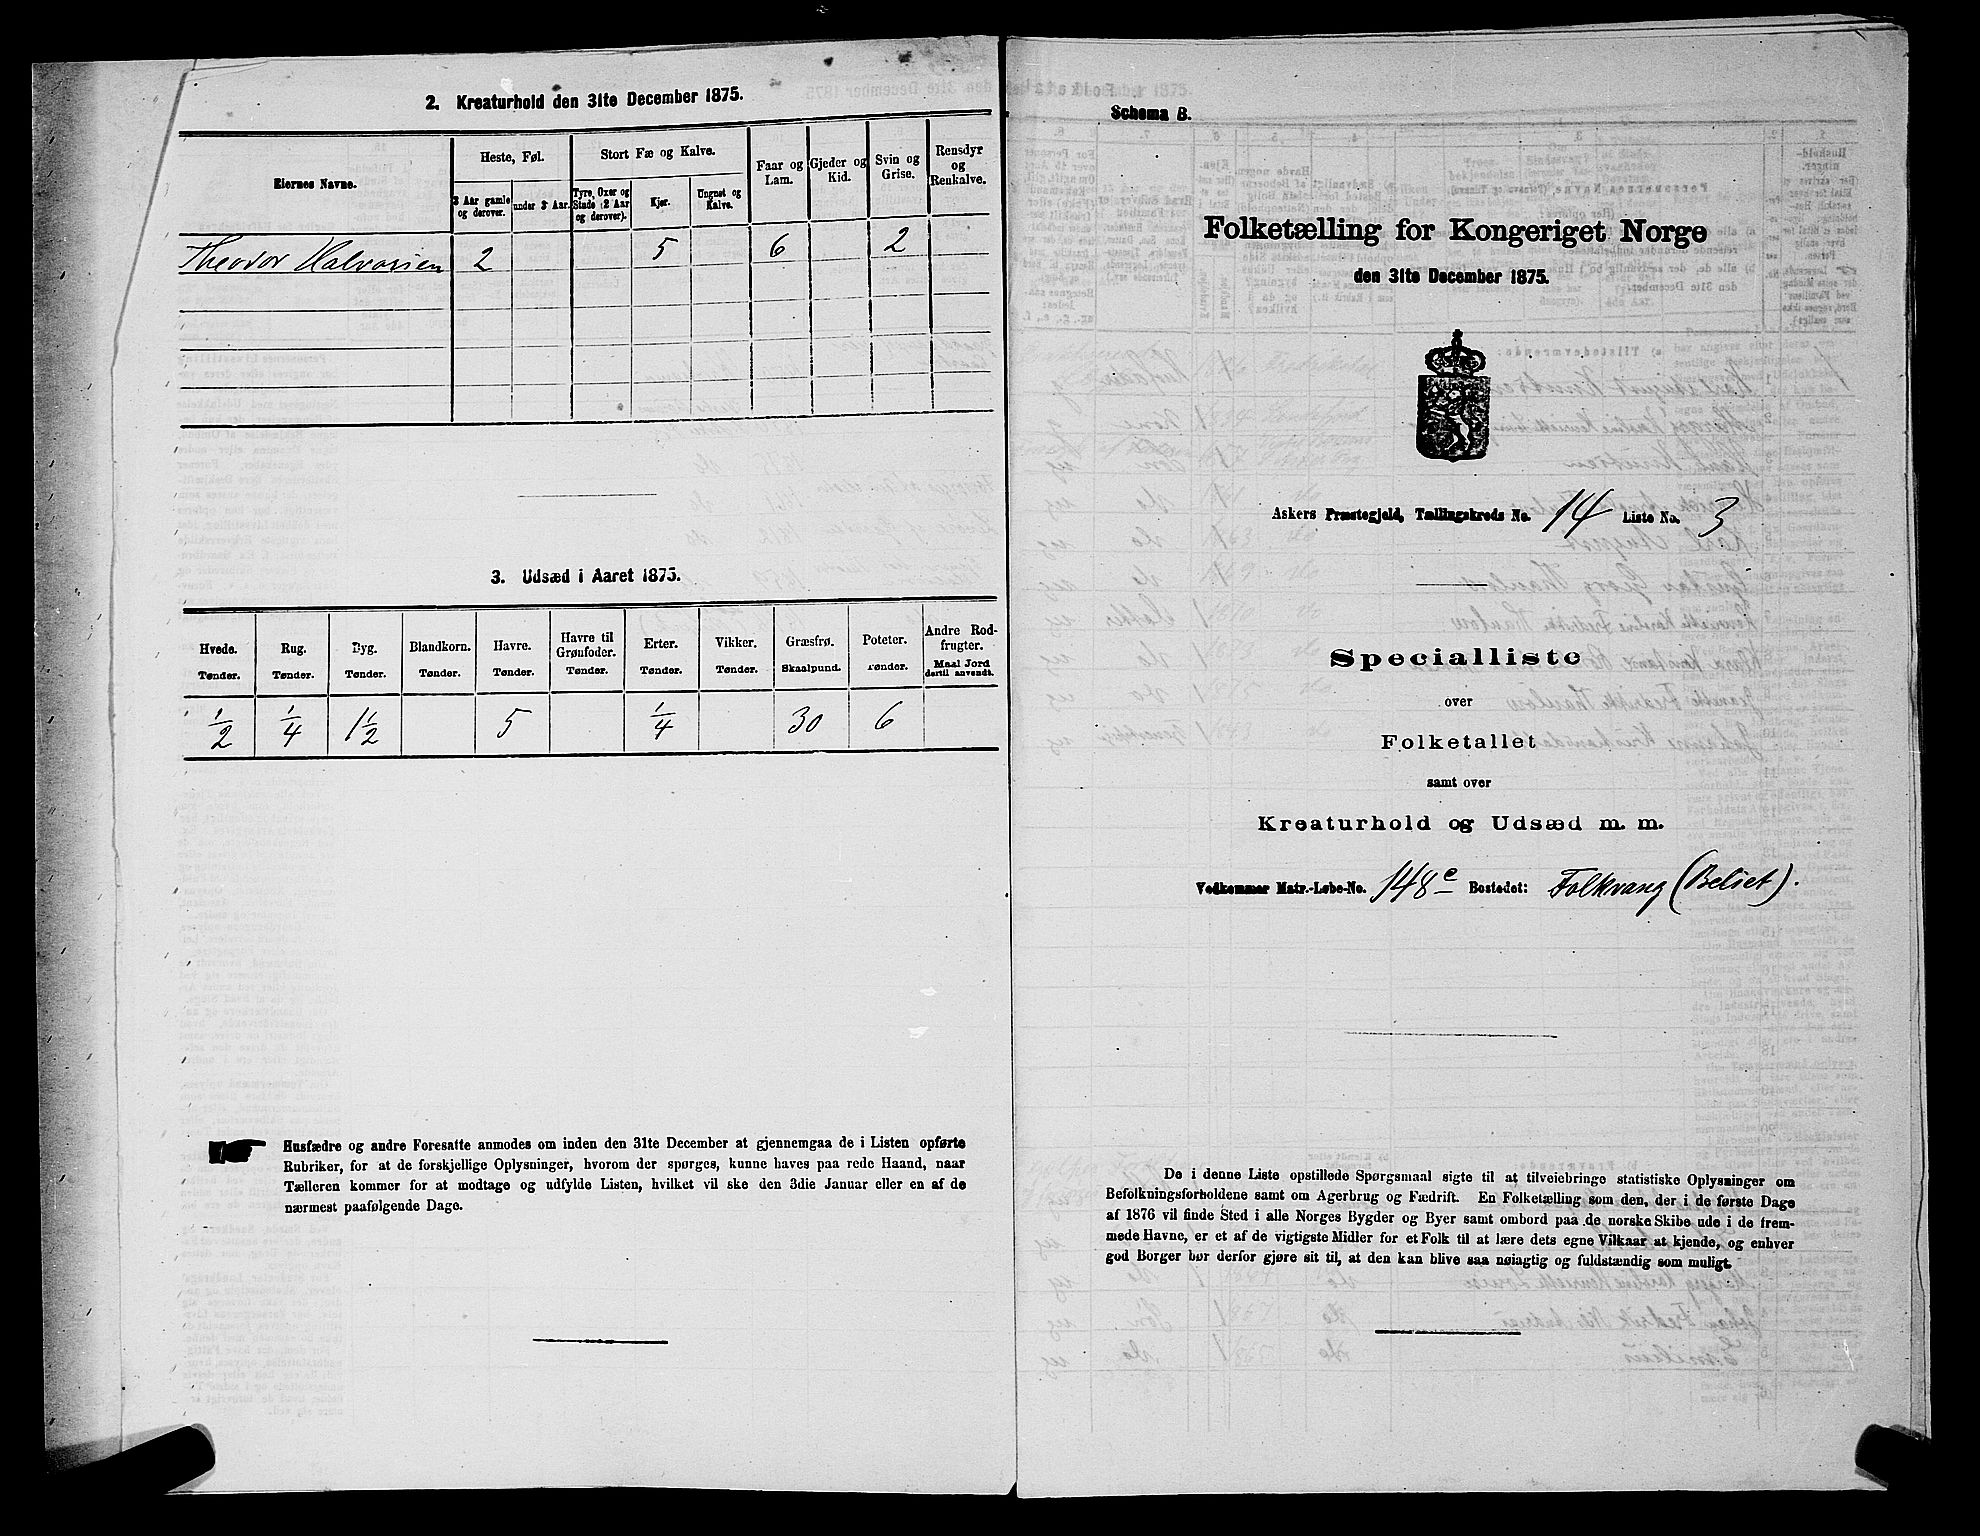 2. Kreaturhold den 31te December 1875.
Eiernes Navne.
Heste, Føl.
3 Aar gamle og derover.
under 3 Aar.
Stort Fæ og Kalve.
Tyre, Oxer og Stude (2 Aar og derover).
Kjør.
Ungnøt og Kalve.
Faar og Lam.
Gjeder og Kid.
Svin og Grise.
Rensdyr og Renkalve.
Theodor Halvorsen 2 5 6 2
3. Udsæd i Aaret 1875.
Hvede. Rug. Byg. Blandkorn. Havre. Havre til Grønfoder. Erter. Vikker. Græsfrø. Poteter. Andre Rodfrugter.
Tønder. Tønder. Tønder. Tønder. Tønder. Tønder. Tønder. Tønder. Skaalpund. Tønder. Maal Jord dertil anvendt.
1/2 1/4 1 1/2 5 1/4 30 6
Husfædre og andre Foresatte anmodes om inden den 31te December at gjennemgaa de i Listen opførte
Rubriker, for at de forskjellige Oplysninger, hvorom der spørges, kunne haves paa rede Haand, naar
Tælleren kommer for at modtage og udfylde Listen, hvilket vil ske den 3die Januar eller en af de
nærmest paafølgende Dage.
Schema B.
Folketælling for Kongeriget Norge
den 31te December 1875.
Askers Præstegjeld, Tællingskreds No. 14 Liste No. 3
Specialliste
over
Folketallet
samt over
Kreaturhold og Udsæd m. m.
Vedkommer Matr.-Løbe-No. 148e Bostedet: Folkvang (Belset).
De i denne Liste opstillede Spørgsmaal sigte til at tilveiebringe statistiske Oplysninger om
Befolkningsforholdene samt om Agerbrug og Fædrift. En Folketælling som den, der i de første Dage
af 1876 vil finde Sted i alle Norges Bygder og Byer samt ombord paa de norske Skibe ude i de frem-
mede Havne, er et af de vigtigste Midler for et Folk til at lære dets egne Vilkaar at kjende, og enhver
god Borger bør derfor gjøre sit til, at den kan blive saa nøiagtig og fuldstændig som muligt.